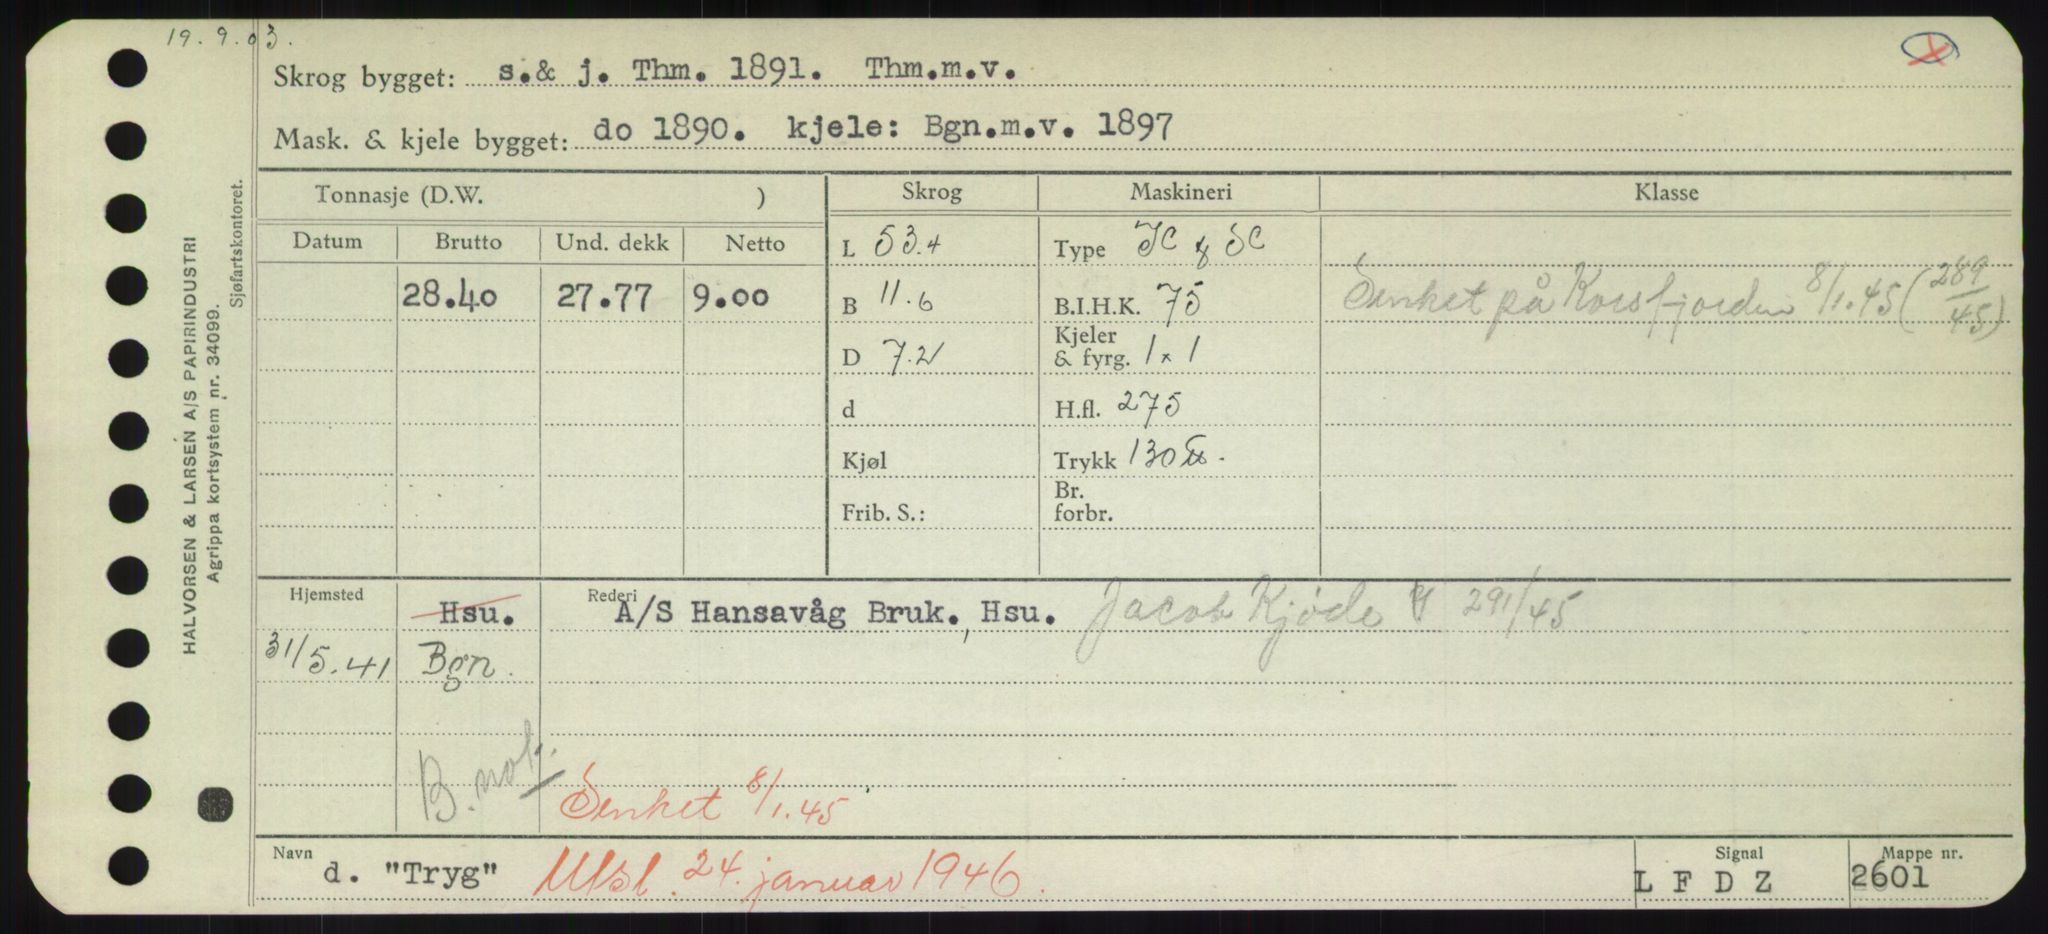 19.9.03.
Skrog bygget: s.& j. Thm. 1891. Thm.m.v.
Mask. & kjele bygget: do 1890. kjele: Bgn.m.v. 1897
HALVORSEN & LARSEN A/S PAPIRINDUSTRI
Agrippa kortsystem nr. 34099.
Sjøfartskontoret.
Tonnasje (D.W. ) Skrog Maskineri Klasse
Datum Brutto Und. dekk Netto L 53.4 Type JC & SC
28.40 27.77 9.00 B 11.6 B.I.H.K. 75 Senket på Korsfjorden 8/1.45 (289/45)
D 7.2 Kjeler & fyrg. 1 x 1
d H.fl. 275
Kjøl Trykk 130 ℔.
Frib. S.: Br. forbr.
Hjemsted Hsu. Rederi A/S Hansavåg Bruk., Hsu. Jacob Kjøde 291/45
31/5.41 Bgn.
B. not.
Senket 8/1.45
Navn d. "Tryg" Utsl. 24. januar 1946. Signal L F D Z Mappe nr. 2601